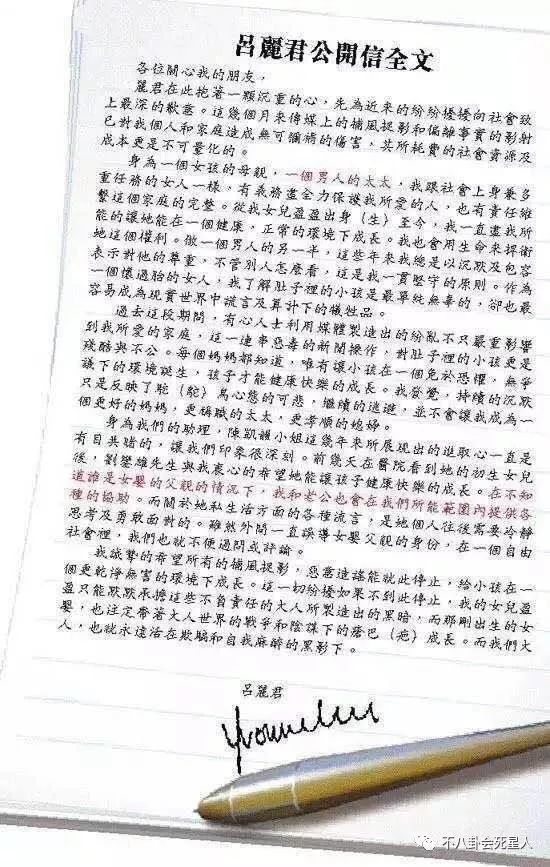 呂麗君公開信全文
各位關心我的朋友，
麗君在此抱著一顆沉重的心，先為近来的紛紛擾擾向社會致
上最深的歉意。這幾個月来傳媒上的捕風捉影和偏離事實的影射
已對我個人和家庭造成無可彌補的傷害，其所耗費的社會資源及
成本更是不可量化的。
身為一個女孩的母親，一個男人的太太，我跟社會上身兼多
重任務的女人一樣，有義務盡全力保護我所愛的人，也有責任維
繫這個家庭的完整。從我女兒盈盈出身（生）至今，我一直盡我所
能的讓她能在一個健康，正常的環境下成長。我也會用生命来捍衛
她這個權利。做一個男人的另一半，這些年来我總是以沉默及包容
表示對他的尊重，不管別人怎麼看，這是我一貫堅守的原則。作為
一個懷過胎的女人，我了解肚子裡的小孩是最單純無辜的，卻也最
容易成為現實世界中謊言及算計下的犠牲品。
過去這段期間，有心人士利用媒體製造出的紛亂不只嚴重影響
到我所愛的家庭，這一連串惡毒的新聞操作，對肚子裡的小孩更是
殘酷與不公。每個媽媽都知道，唯有讓小孩在一個免於恐懼，無爭
議下的環境誕生，孩子才能健康快樂的成長。我發覺，持續的沉默
只是反映了駝（鴕）鳥心態的可悲，繼續的逃避，並不會讓我成為一
個更好的媽媽，更稱職的太太，更孝順的媳婦。
身為我們的助理，陳凱韻小姐這幾年来所展現出的進取心一直是
有目共睹的，讓我們印象很深刻。前幾天在醫院看到她的初生女兒
後，劉鑾雄先生與我衷心的希望她能讓孩子健康快樂的成長。在不知
道誰是女嬰的父親的情況下，我和老公也會在我們所能範圍內提供各
種的協助。而關於她私生活方面的各種流言，是她個人往後需要冷靜
思考及勇敢面對的。雖然外間一直誤導女嬰父親的身份，在一個自由
社會裡，我們也就不便過問或評論。
我誠摯的希望所有的捕風捉影，惡意造謠能就此停止，給小孩在一
個更乾淨無害的環境下成長。這一切紛擾如果不到此停止，我的女兒盈
盈只能默默承擔這些不負責任的大人所製造出的黑暗，而那剛出生的女
嬰，也注定帶著大人世界的戰爭和陰謀下的痞巴（疤）成長。而我們大
人，也就永遠活在欺騙和自我麻醉的黑影下。
呂麗君
不八卦会死星人